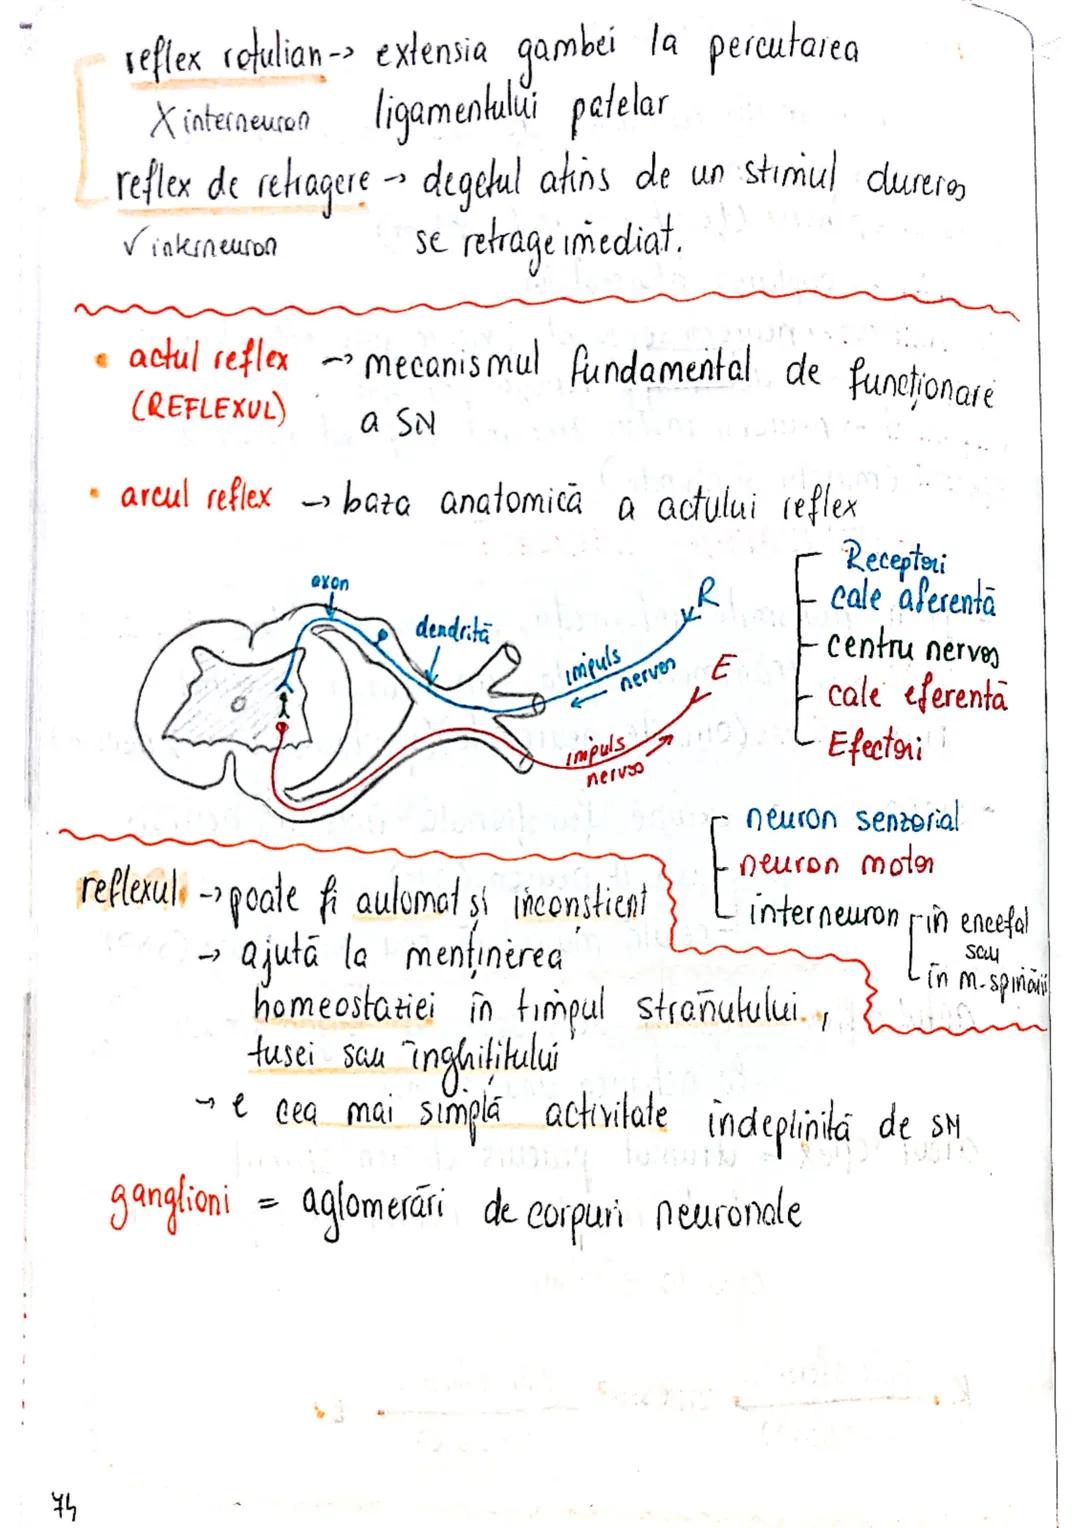 reflex rotulian -> extensia gambei la percutarea
X interneuron ligamentului patelar
reflex de retragere -> degetul atins de un stimul dureros
✓ interneuron se retrage imediat.
• actul reflex -> mecanismul fundamental de funcționare
(REFLEXUL) a SN
• arcul reflex -> baza anatomică a actului reflex
axon
dendrită
R
impuls
nervos
E
impuls
nervos
Receptori
cale aferentă
centru nervos
cale eferentă
Efectori
neuron senzorial
neuron motor
interneuron în encefal
sau
în m. spinării
reflexul -> poate fi automat și inconștient
-> ajută la menținerea
homeostaziei în timpul strănutului,
tusei sau înghițitului
-> e cea mai simplă activitate îndeplinită de SN
ganglioni = aglomerări de corpuri neuronale
74